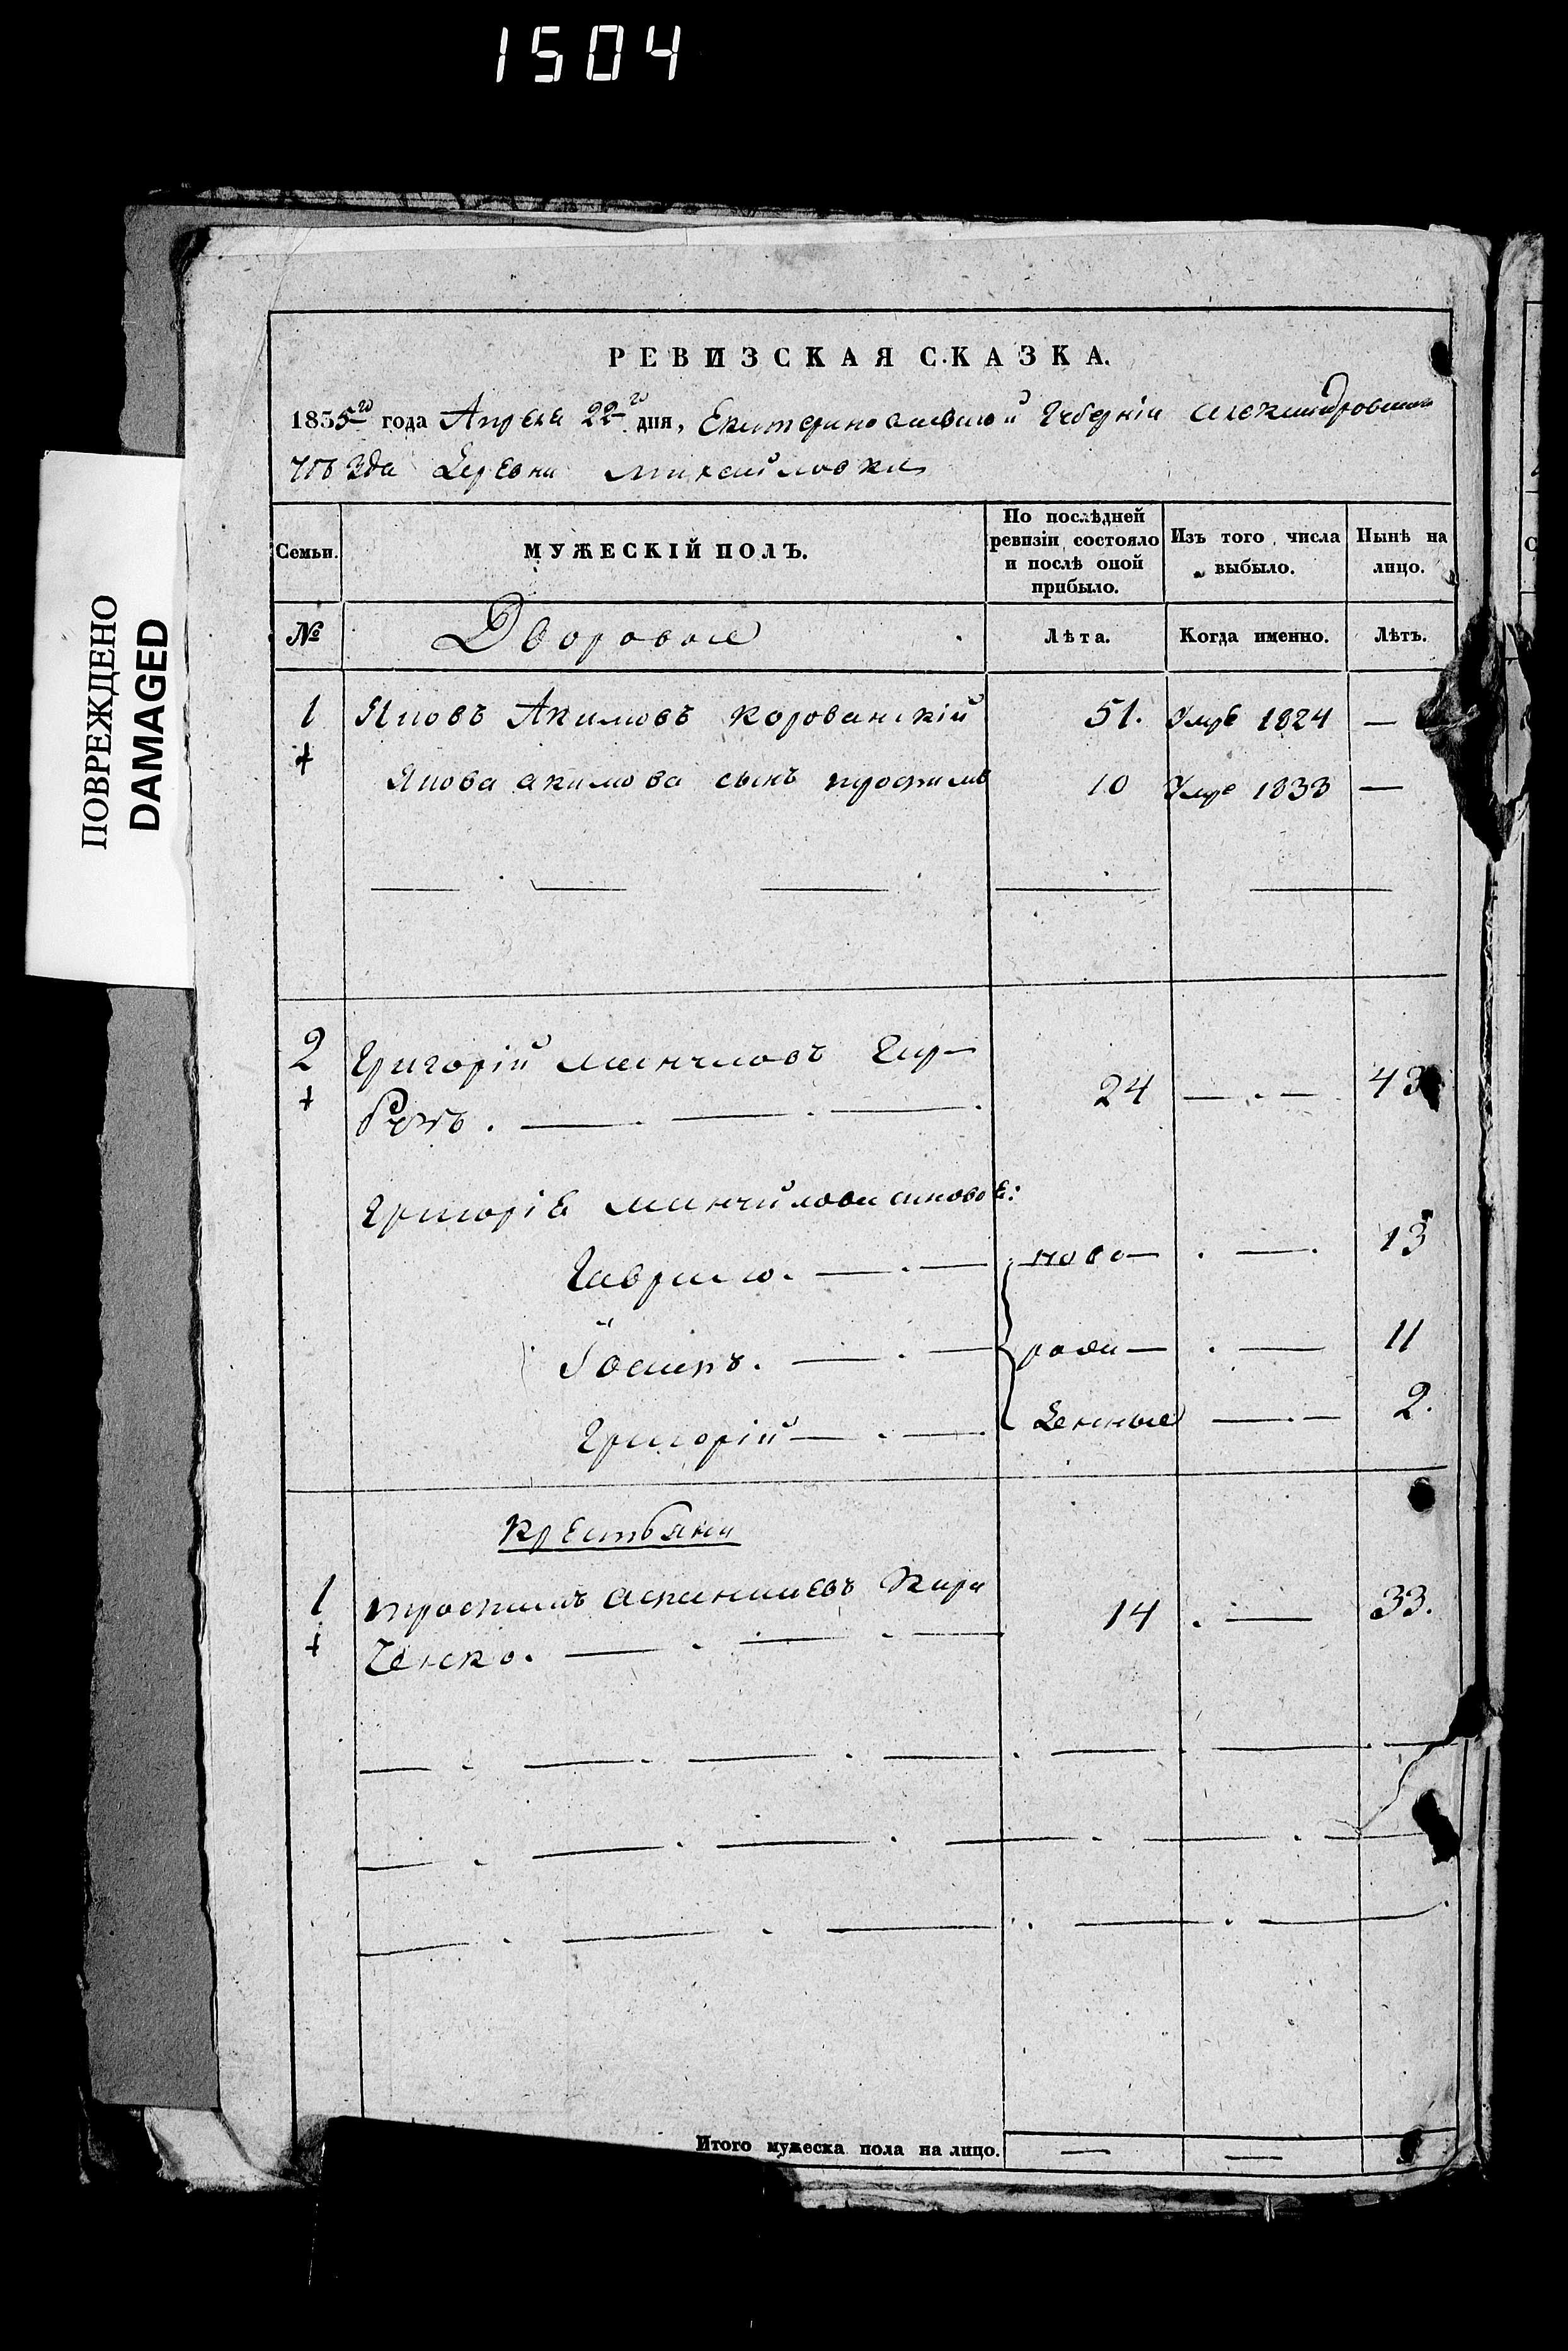 1504
ПОВРЕЖДЕНО
DAMAGED
РЕВИЗСКАЯ СКАЗКА.
1835го года Апреля 22го дня, Екатеринославской Губерніи Александровскаго
уѣзда Деревни Михайловки
Семьи. МУЖЕСКІЙ ПОЛЪ. По послѣдней ревизіи состояло и послѣ оной прибыло. Изъ того числа выбыло. Нынѣ на лицо.
№ Дворовые Лѣта. Когда именно. Лѣтъ.
1 Яковъ Акимовъ 51. Умре 1824 —
Якова Акимова сынъ трофимъ 10 Умре 1833 —
2 Григорій
24 — . — 43
Григорія сыновья:
Гаврило. ново 13
Іосипъ. роди 11
Григорій денные 2.
Крестьяни
1 трофимъ 14 33.
ченско.
Итого мужеска пола на лицо. — —